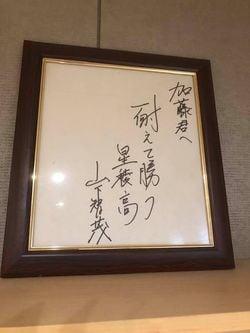 加藤君へ
耐えて勝つ
星稜高
山下智茂